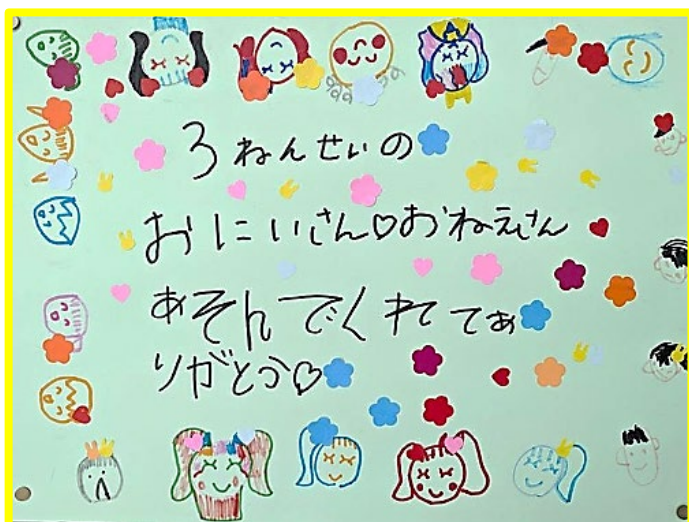 3ねんせいの
おにいさん♡おねえさん
あそんでくれててあ
りがとう♡